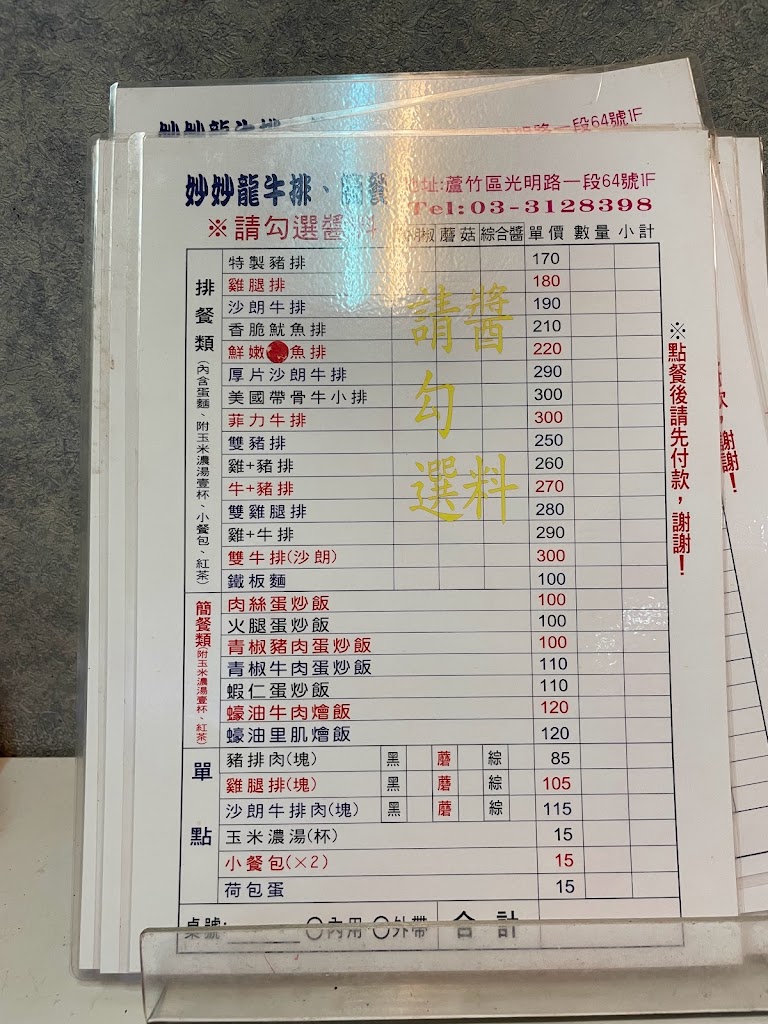 妙妙龍牛排
路一段64號1F
妙妙龍牛排、簡餐 地址:蘆竹區光明路一段64號1F
Tel:03-3128398
※請勾選醬料 椒 蘑菇 綜合醬 單價 數量 小計
排餐類(內含蛋麵、附玉米濃湯壹杯、小餐包、紅茶)
特製豬排 170
雞腿排 180
沙朗牛排 190
香脆魷魚排 210
鮮嫩 魚排 220
厚片沙朗牛排 290
美國帶骨牛小排 300
菲力牛排 300
雙豬排 250
雞+豬排 260
牛+豬排 270
雙雞腿排 280
雞+牛排 290
雙牛排(沙朗) 300
鐵板麵 100
請勾選
醬料
簡餐類(附玉米濃湯壹杯、紅茶)
肉絲蛋炒飯 100
火腿蛋炒飯 100
青椒豬肉蛋炒飯 100
青椒牛肉蛋炒飯 110
蝦仁蛋炒飯 110
蠔油牛肉燴飯 120
蠔油里肌燴飯 120
單點
豬排肉(塊) 黑 蘑 綜 85
雞腿排(塊) 黑 蘑 綜 105
沙朗牛排肉(塊) 黑 蘑 綜 115
玉米濃湯(杯) 15
小餐包(×2) 15
荷包蛋 15
桌號: ○內用 ○外帶 合計
※點餐後請先付款，謝謝！
款，謝謝！